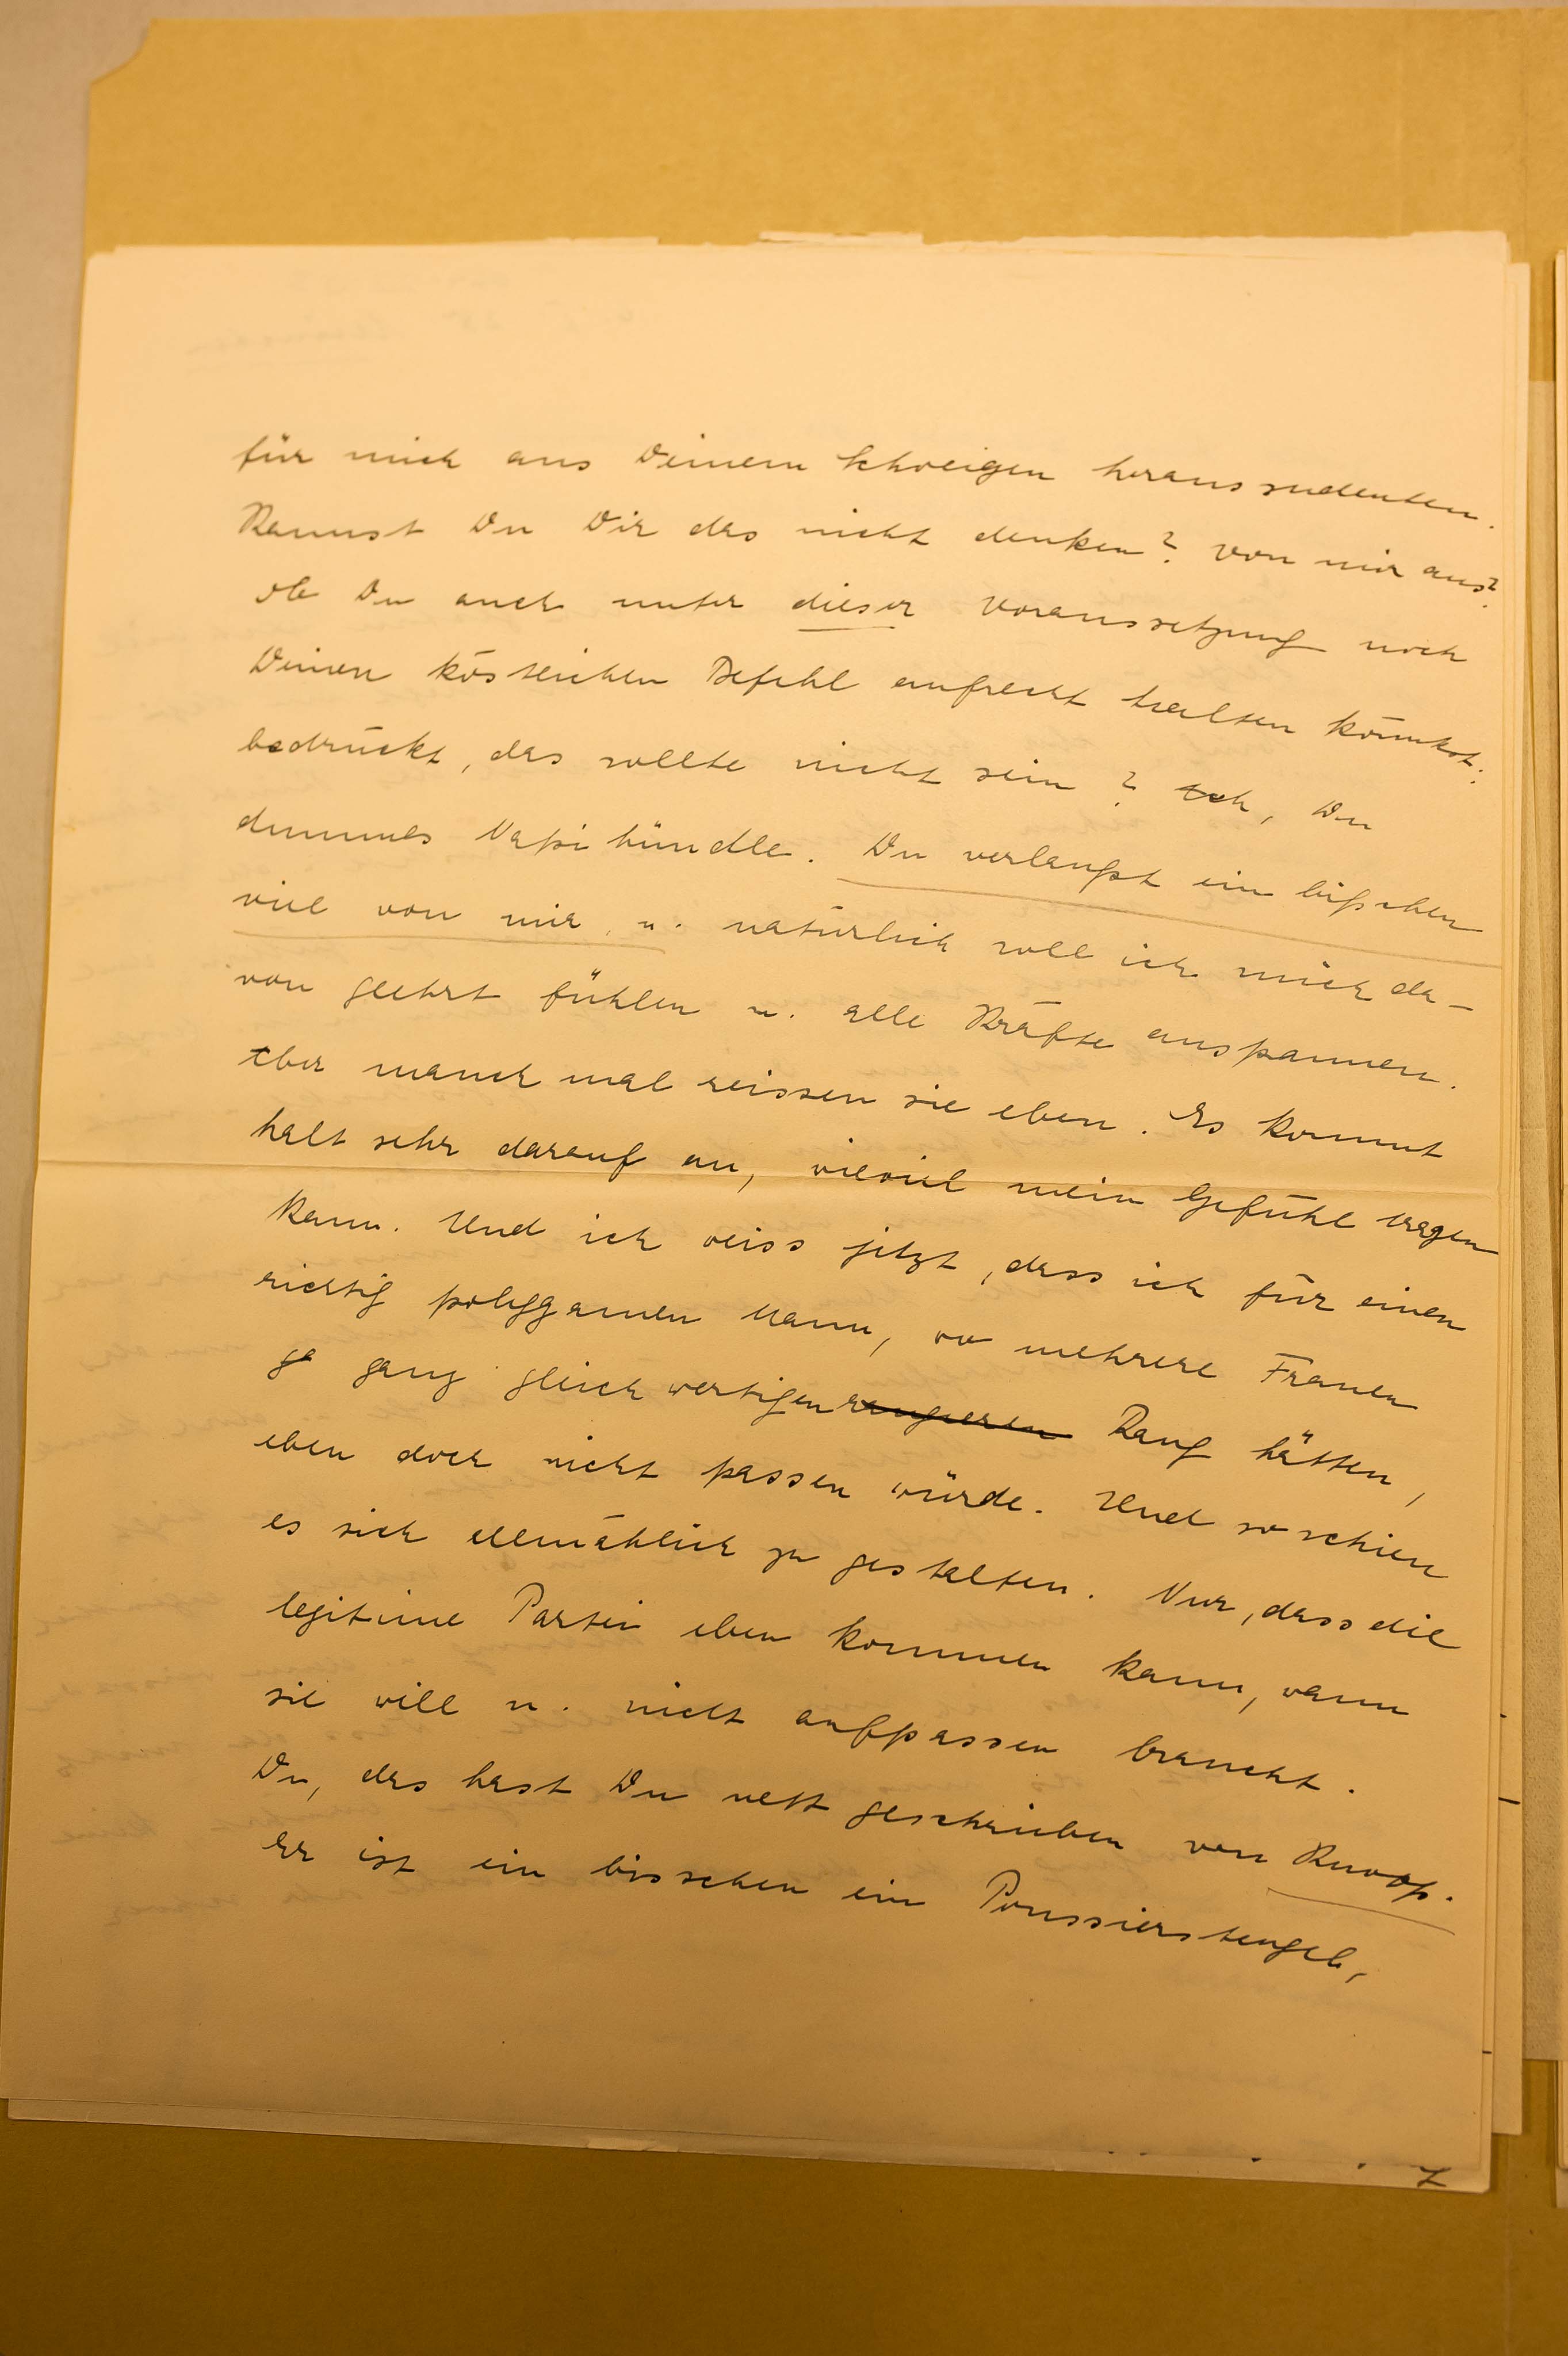 für mich aus Deinem Schweigen herauszudeuten.
Kannst Du Dir das nicht denken? Von mir aus?
Ob Du auch unter dieser Voraussetzung noch
Deinen köstlichen Befehl aufrecht halten könntest:
bedrückt, das sollte nicht sein? Ach, Du
dummes Napihündle. Du verlangst ein bißchen
viel von mir, u. natürlich soll ich mich da-
von geehrt fühlen u. alle Kräfte anspannen.
Aber manchmal reissen sie eben. Es kommt
halt sehr darauf an, wieviel mein Gefühl tragen
kann. Und ich weiss jetzt, dass ich für einen
richtig polygamen Mann, wo mehrere Frauen
ja ganz gleichwertigen rangieren Rang hätten,
eben doch nicht passen würde. Und so schien
es sich allmählich zu gestalten. Nur, dass die
legitime Partei eben kommen kann, wann
sie will u. nicht aufpassen braucht.
Du, das hast Du nett geschrieben von Knoop.
Er ist ein bisschen ein Poussierstengel,